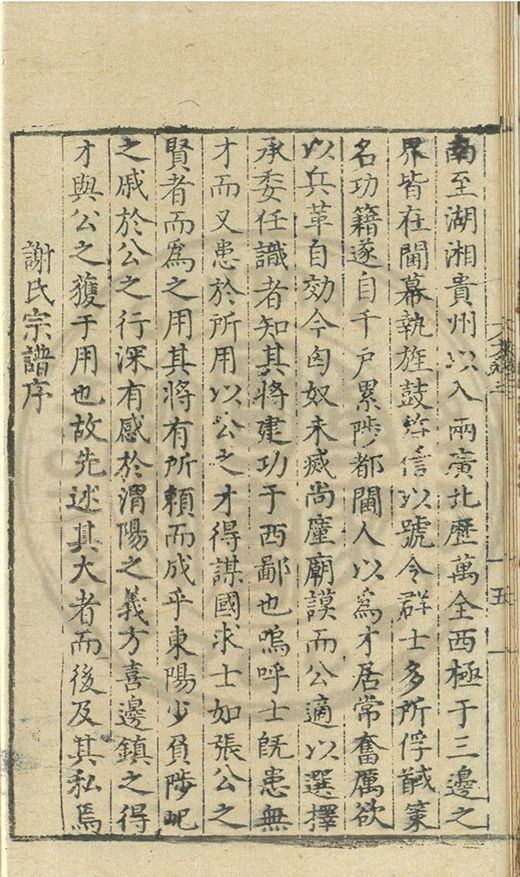 南至湖湘貴州以入兩廣北歷萬全西極于三邊之
界皆在閫幕執旌鼓符信以號令群士多所俘馘策
名功籍遂自千戶累陟都閫人以爲才居常奮厲欲
以兵革自効今匈奴未滅尚廑廟謨而公適以選擇
承委任識者知其將建功于西鄙也嗚呼士旣患無
才而又患於所用以公之才得謀國求士如張公之
賢者而爲之用其將有所頼而成乎東陽少負陟屺
之戚於公之行深有感於渭陽之義方喜邊鎮之得
才與公之獲于用也故先述其大者而後及其私焉
謝氏宗譜序
五